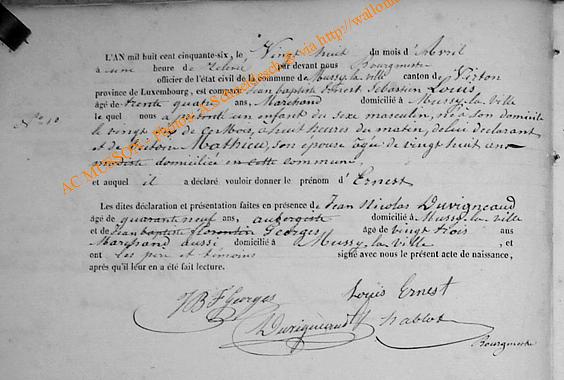 L'AN mil huit cent cinquante-six, le Vingt huit du mois d'Avril
à une heure de relevé par devant nous Bourgmestre
officier de l'état civil de la commune de Mussy-la-ville canton de Virton
province de Luxembourg, est comparu Jean baptiste Ernest Sebastien Louis
âgé de trente quatre ans, Marchand domicilié à Mussy-la-Ville
N° 10
le quel nous a présenté un enfant du sexe masculin, né à son domicile
le vingt de ce mois, à huit heures du matin, de lui déclarant
et de Mathieu, son épouse âgée de vingt huit ans
modiste domiciliée en cette commune,
et auquel il a déclaré vouloir donner le prénom d'Ernest
Les dites déclaration et présentation faites en présence de Jean Nicolas Duvigneaud
âgé de quarante neuf ans, aubergiste domicilié à Mussy-la-ville
et de Jean baptiste florentin Georges âgé de vingt trois ans
Marchand aussi domicilié à Mussy-la-ville, et
ont les père et témoins signé avec nous le présent acte de naissance,
après qu'il leur en a été fait lecture.
HBF Georges
Louis Ernest
Duvigneaud
Bourgmestre
AC MUSSON - Photos A.S. via http://wallon